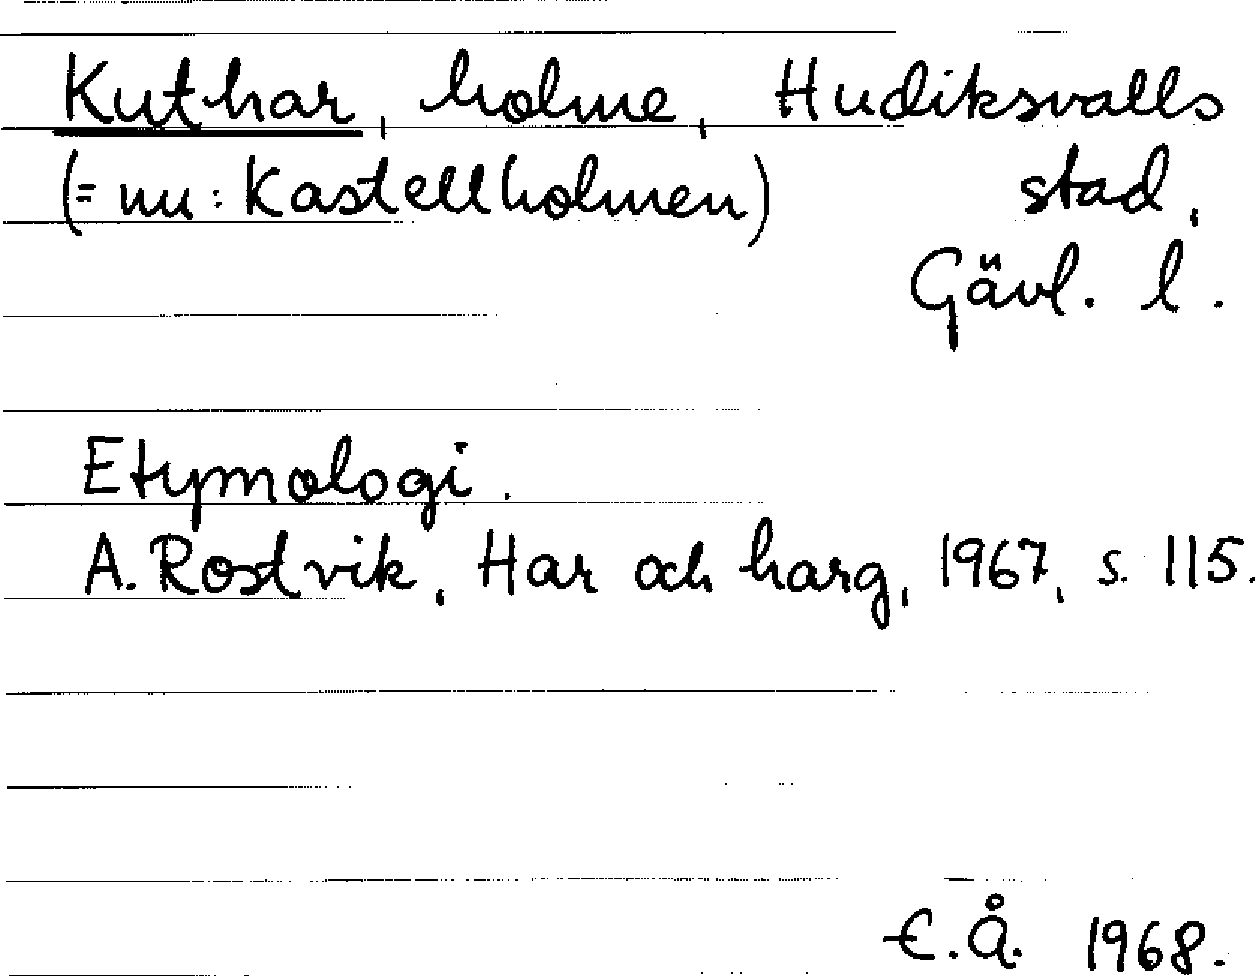 Kuthar, holme, Hudiksvalls
(= nu: Kastellholmen) stad,
Gävl. l.
Etymologi.
A. Rostvik, Har och harg, 1967, s. 115.
E.Å. 1968.